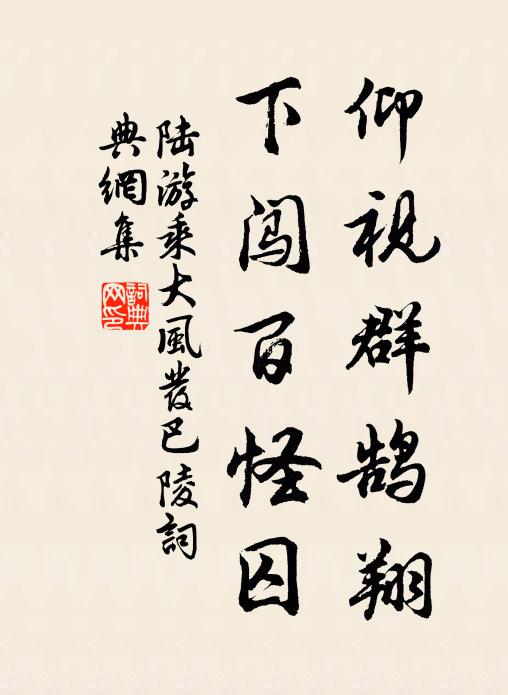 仰视群鹄翔
下闯百怪囚
陆游乘大風發巴陵詞
典網集
詞典網印